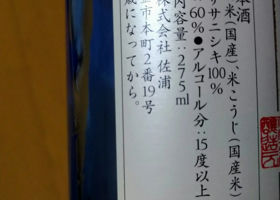 本酒
米(国産)、米こうじ(国産米)
ササニシキ100%
60%●アルコール分:15度以上
内容量:275ml
株式会社 佐浦
市本町2番19号
歳になってから。